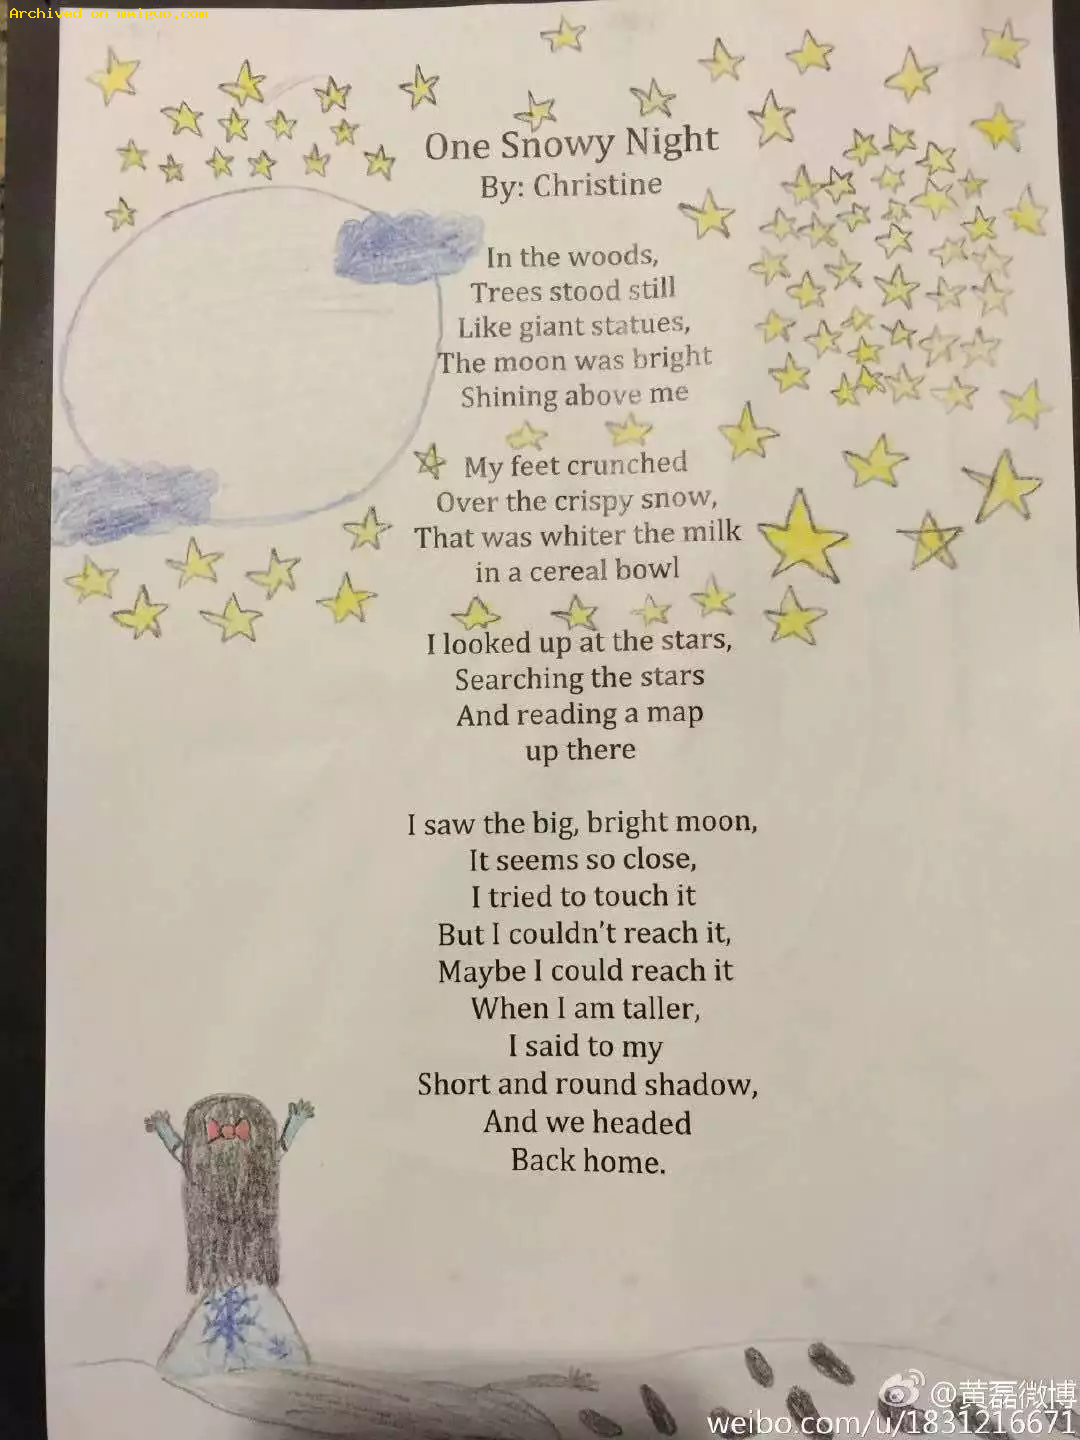 Archived on meiguo.com
One Snowy Night
By: Christine
In the woods,
Trees stood still
Like giant statues,
The moon was bright
Shining above me
My feet crunched
Over the crispy snow,
That was whiter the milk
in a cereal bowl
I looked up at the stars,
Searching the stars
And reading a map
up there
I saw the big, bright moon,
It seems so close,
I tried to touch it
But I couldn't reach it,
Maybe I could reach it
When I am taller,
I said to my
Short and round shadow,
And we headed
Back home.
@黄磊微博
weibo.com/u/1831216671